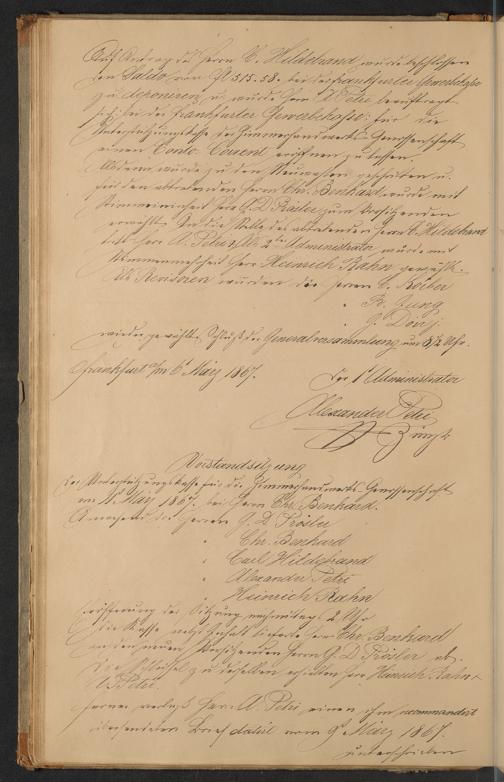 Auf Antrag des Herrn C. Hildebrand wurde beschlossen
den Saldo von fl 515.58. bei der Frankfurter Gewerbekasse
zu deponiren u. wurde Herr A. Petri beauftragt
sich bei der Frankfurter Gewerbekasse für die
Unterstützungskasse der Zimmerhandwerks-Genossenschaft
einen Conto Courent eröffnen zu lassen.
Alsdann wurde zu den Neuwahlen geschritten u.
für den abtretenden Herrn Chr. Benhard wurde mit
Stimmeneinheit Herr G. D. Rösler zum Vorsitzenden
erwählt. An die Stelle des abtretenden Herrn C. Hildebrand
tritt Herr A. Petri, als 2ter Administrator wurde mit
Stimmenmehrheit Herr Heinrich Rahn gewählt.
Als Revisoren wurden die Herren C. Korber
" Jung
" G.
wieder gewählt. Schluß der Generalversammlung um 8 1/2 Uhr.
Frankfurt a/m 6 März 1867.
Der 1te Administrator
Alexander Petri
Vorstandsitzung
der Unterstützungskasse für die Zimmerhandwerks-Genossenschaft
am März 1867. bei Herrn Chr. Benhard.
Anwesend die Herren G. D. Rösler
" Chr. Benhard
" Carl Hildebrand
" Alexander Petri
" Heinrich Rahn
Eröffnung der Sitzung nachmittags 2 Uhr
die Kasse nebst Inhalt lieferte Herr Chr. Benhard
an den neuen Vorsitzenden Herrn G. D. Rösler ab.
Die Schlüssel zu derselben erhielten Herr Heinrich Rahn u.
A. Petri.
Ferner verlas Herr A. Petri einen ihm recommandirt
übersendeten Brief datirt vom 9 März 1867.
unterschrieben